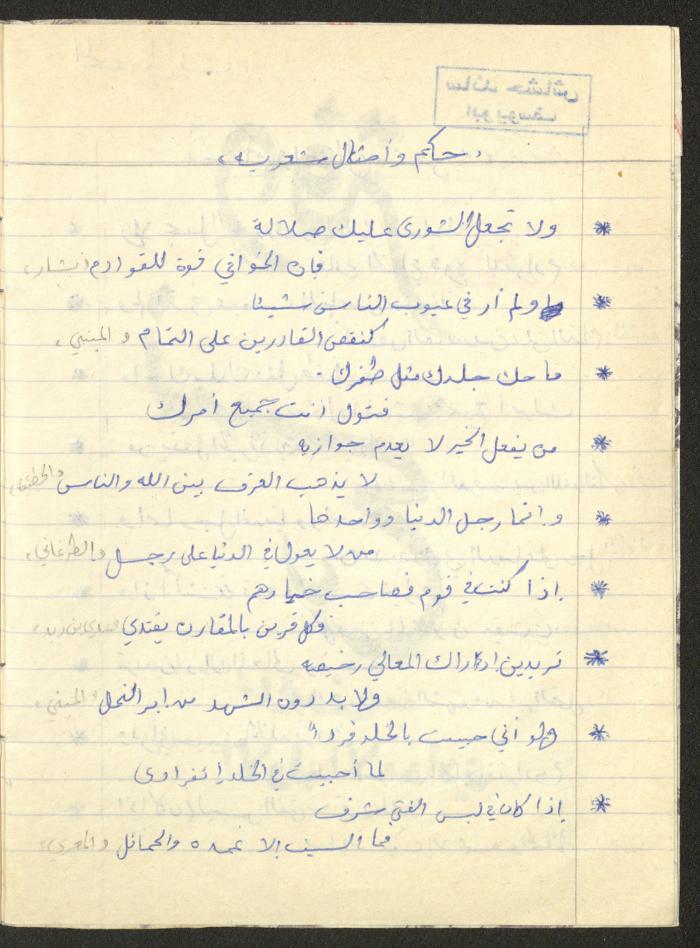 سائد حشاش
ابو يوسف
" حكم وأمثال شعرية "
* ولا تجعل الشورى عليك ضلالة
فإن الخوافي قوة للقوادم "بشار"
* ولم أر في عيوب الناس شيئا
كنقص القادرين على التمام "المتنبي"
* ما حك جلدك مثل ظفرك
فتول أنت جميع أمرك
* من يفعل الخير لا يعدم جوازيه
لا يذهب العرف بين الله والناس "الحطيئة"
* وإنما رجل الدنيا وواحدها
من لا يعول في الدنيا على رجل "الطغرائي"
* إذا كنت في قوم فصاحب خيارهم
فكل قرين بالمقارن يقتدي "عدي بن زيد"
* تريدين إدراك المعالي رخيصه
ولا بد دون الشهد من إبر النحل "المتنبي"
* ولو أني حبيت بالخلد فرداً
لما أحببت في الخلد إنفرادي
* إذا كان في لبس الفتى شرف
فما السيف إلا غمده والحمائل "المعري"